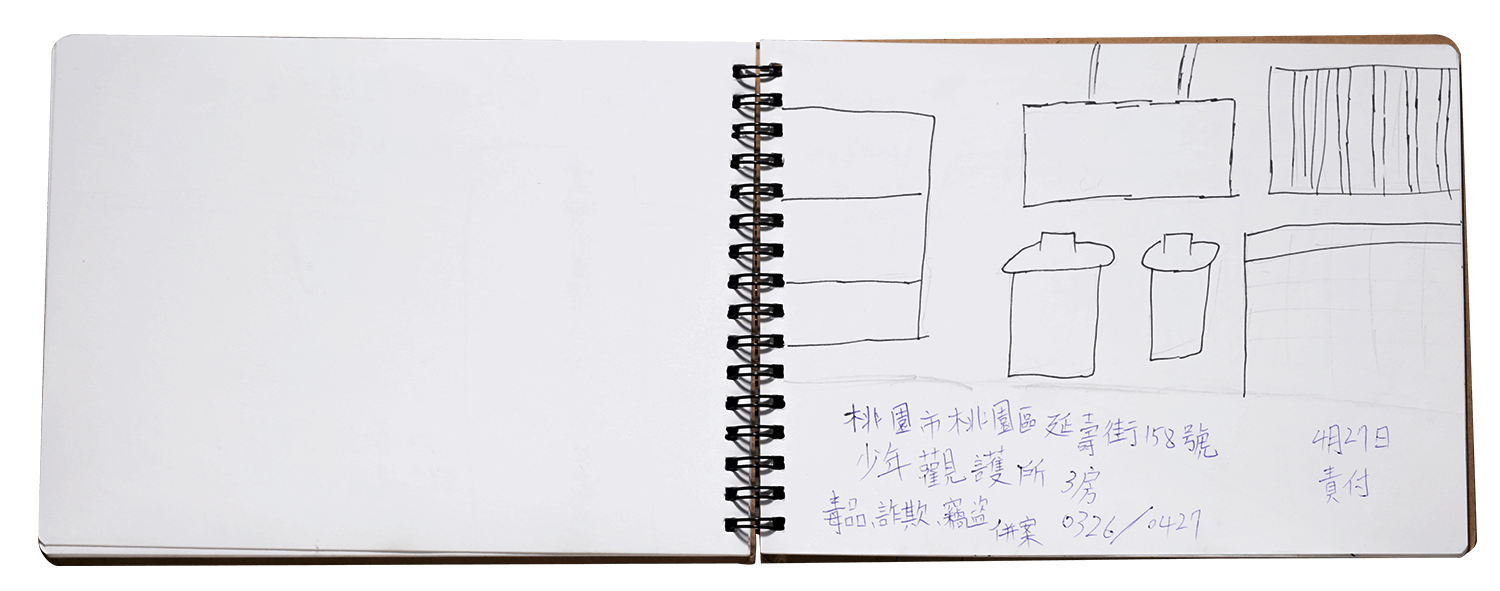 桃園市桃園區延壽街158號
少年觀護所 3房
毒品、詐欺、竊盜 併案 0326/0427
4月27日
責付